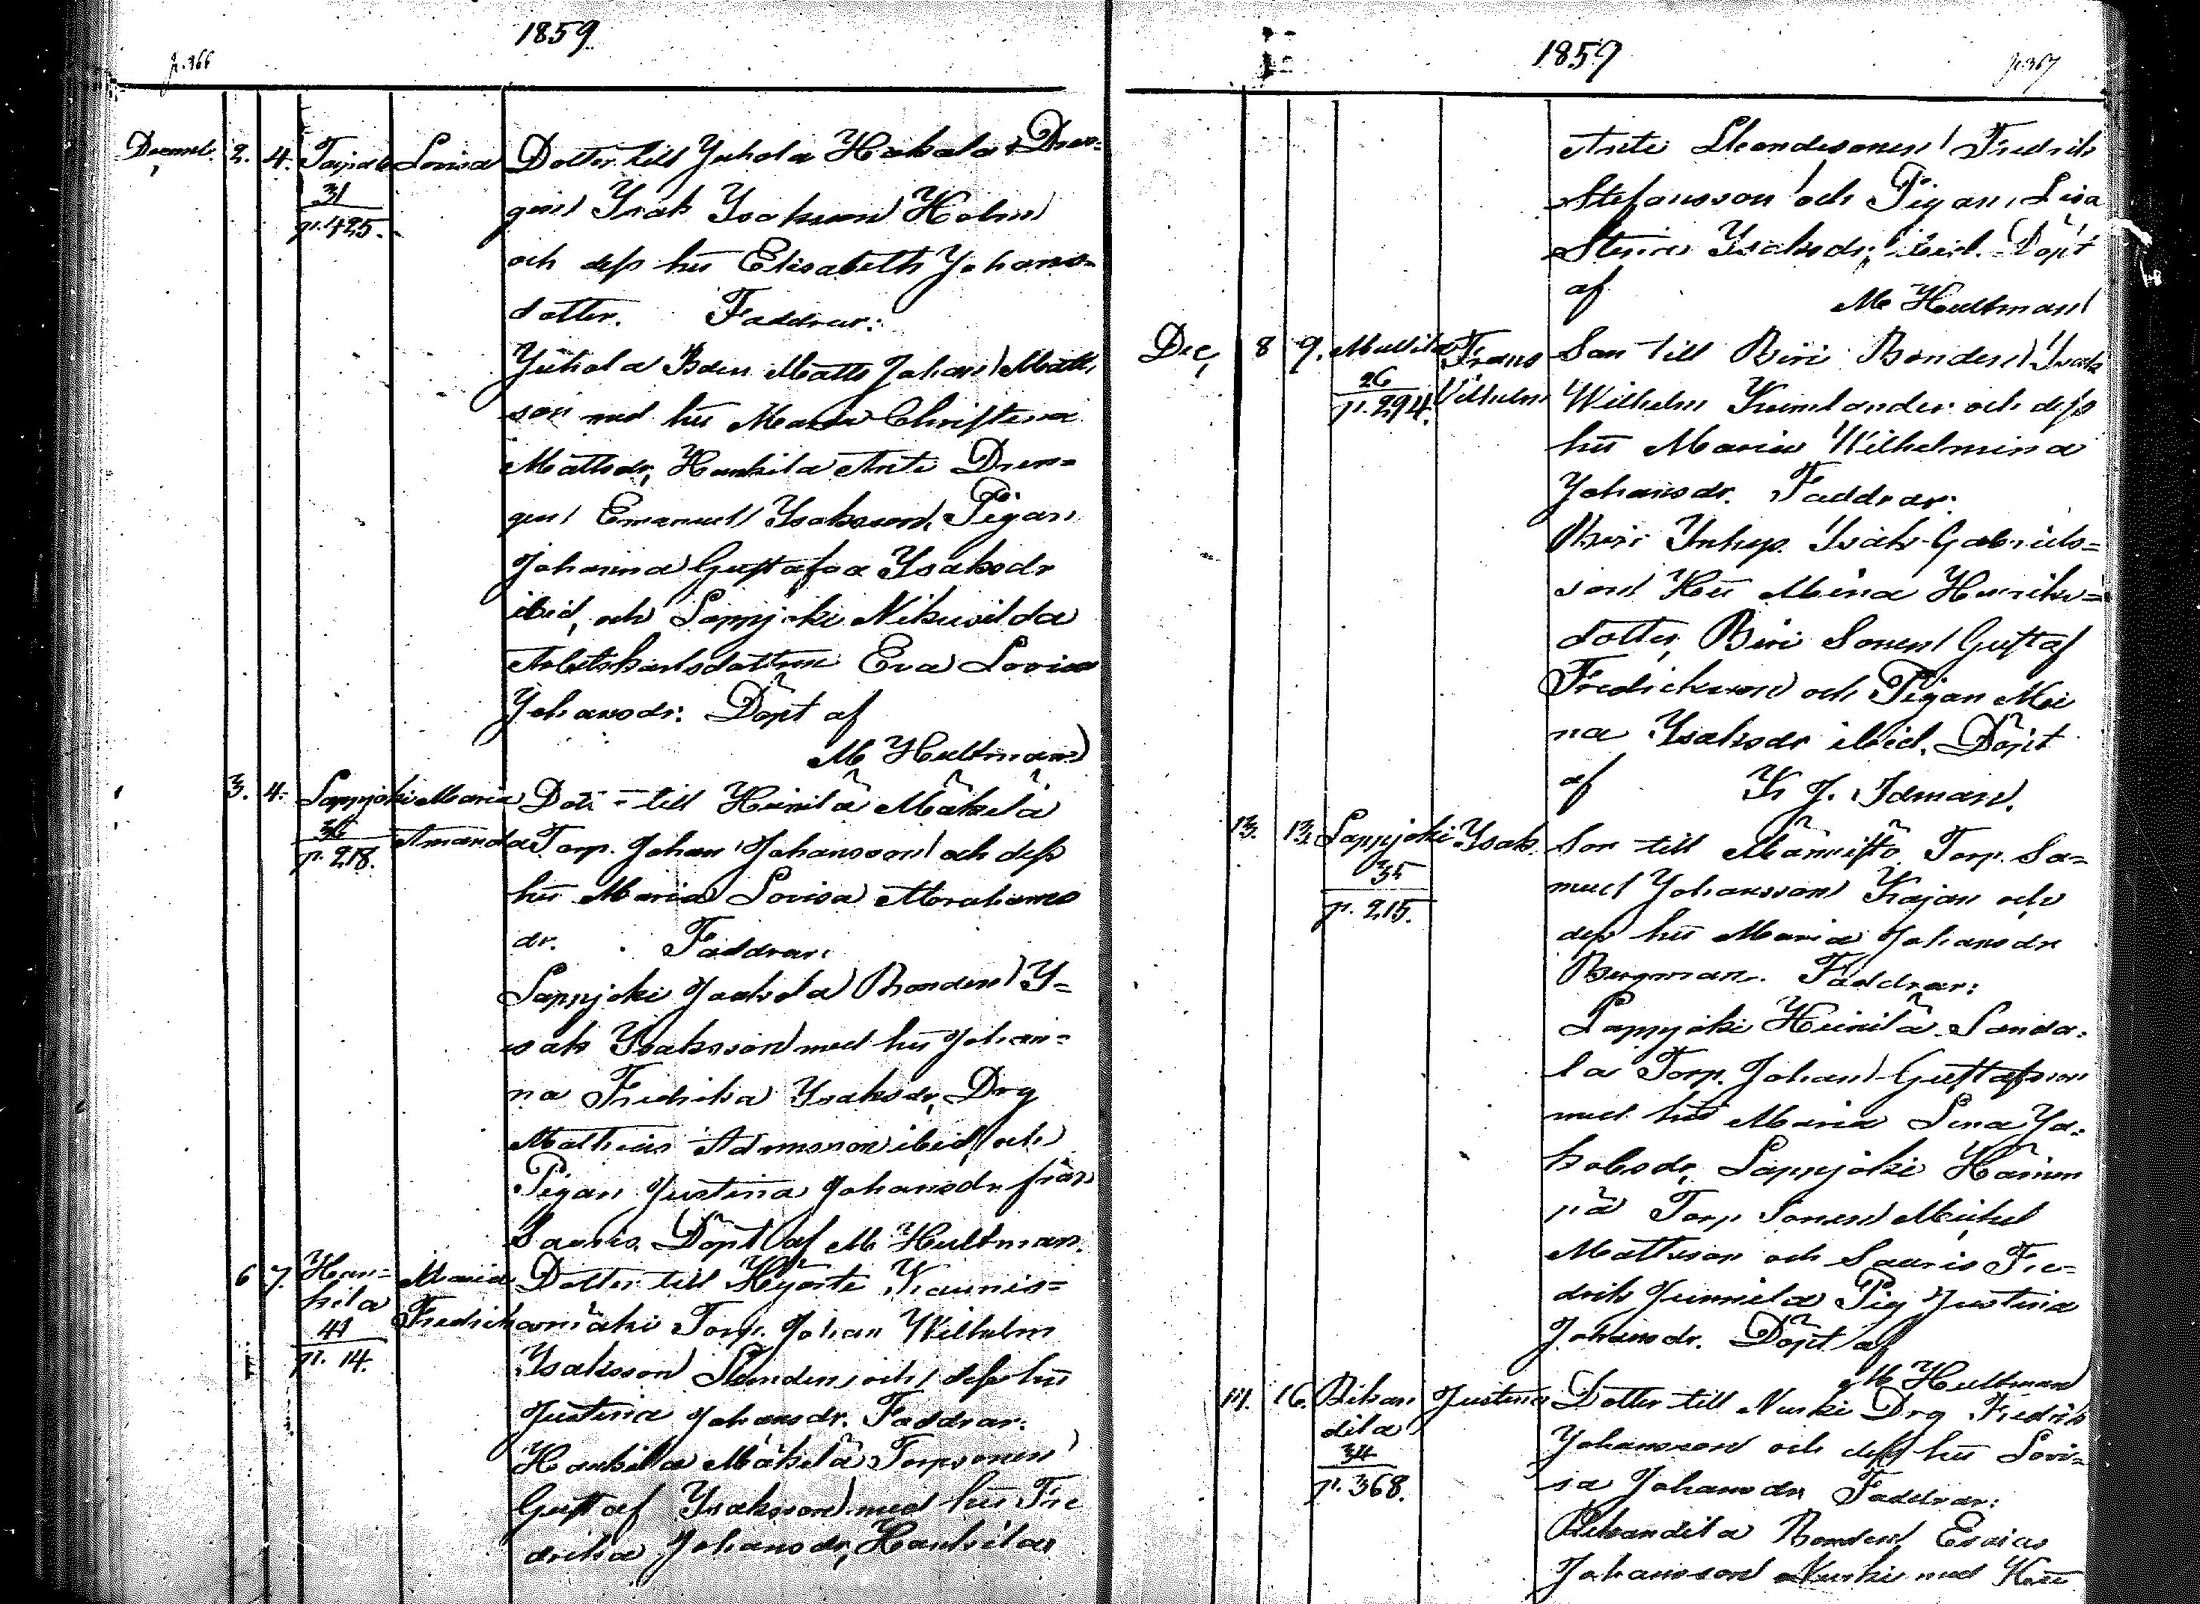 1859
p. 366
Decemb. 2. 4. Tarpala Lovisa Dotter till Juhola Hakala Dren=
31 gen Isak Isaksson Holm
p. 425. och dess hu Elisabeth Johans=
dotter. Faddrar:
Juhola Bden Matts Johan Matts
son med hu Maria Christina
Mattsdr, Hankila Anti Dren=
gen Emanuel Isaksson, Pigan
Johanna Gustafva Isaksdr
ibid, och Lappjoki Nikuvilda
Arbetskarlsdottren Eva Lovisa
Johansdr. Döpt af
M Hultman
3. 4. Lappjoki Maria Dotr till Heinilä Mäkelä
36 Amanda Torp. Johan Johansson och dess
p. 218. hu Maria Lovisa Abrahams
dr. Faddrar:
Lappjoki Jaakola Bonden I=
sak Isaksson med hu Johan=
na Fredrika Isaksdr, Drg
Mathias Adamsson ibid, och
Pigan Justina Johansdr från
Sauris. Döpt af M Hultman.
6 7. Han= Maria Dotter till Hjorte Kaunis=
kila Fredrika mäki Torp. Johan Wilhelm
41 Isaksson Sanden och dess hu
p. 14. Justina Johansdr. Faddrar:
Hankila Mäkilä Torpsonen
Gustaf Isaksson med hu Fre
drika Johansdr, Hankilan
1859
p. 367
Anti Sonen Fredrik
Stefansson och Pigan Lisa
Stina Isaksdr, ibid. Döpt
af M Hultman
Dec, 8 9. Mullila Frans Son till Biri Bonden Isak
26 Vilhelm Wilhelm Kumlander och dess
p. 294. hu Maria Wilhelmina
Johansdr. Faddrar:
Biri Inhys. Isak Gabriels=
son Hu Mina Henriks=
dotter, Biri Sonen Gustaf
Fredricksson och Pigan Mi
na Isaksdr ibid. Döpt
af K J. Idman.
13. 13. Lappjoki Isak Son till Männistö Torp. Sa=
35 muel Johansson Kajan och
p. 215. dess hu Maria Johansdr
Bergman. Faddrar:
Lappjoki Heinilä Sanda=
la Torp. Johan Gustafsson
med hu Maria Lena Ja=
kobsdr, Lappjoki Hännin
pä Torp Sonen Michel
Mattsson och Sauris Fre=
drik Junnila Pig Justina
Johansdr. Döpt af
M Hultman
14. 16. Bihan Justina Dotter till Nurki Drg Fredrik
dila Johansson och dess hu Lovi=
34 sa Johansdr Faddrar:
p. 368. Bihandila Bonden Esaias
Johansson Nurki med Hu